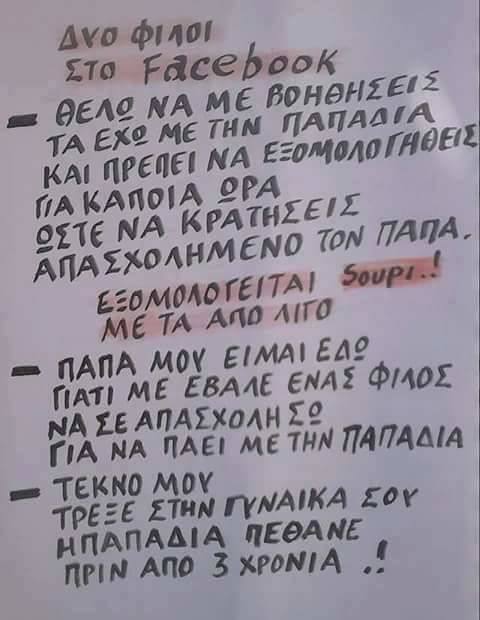 ΔΥΟ ΦΙΛΟΙ
ΣΤΟ FacebooK
– ΘΕΛΩ ΝΑ ΜΕ ΒΟΗΘΗΣΕΙΣ
ΤΑ ΕΧΩ ΜΕ ΤΗΝ ΠΑΠΑΔΙΑ
ΚΑΙ ΠΡΕΠΕΙ ΝΑ ΕΞΟΜΟΛΟΓΗΘΕΙΣ
ΓΙΑ ΚΑΠΟΙΑ ΩΡΑ
ΩΣΤΕ ΝΑ ΚΡΑΤΗΣΕΙΣ
ΑΠΑΣΧΟΛΗΜΕΝΟ ΤΟΝ ΠΑΠΑ.
ΕΞΟΜΟΛΟΓΕΙΤΑΙ Soupι.!
ΜΕΤΑ ΑΠΟ ΛΙΓΟ
– ΠΑΠΑ ΜΟΥ ΕΙΜΑΙ ΕΔΩ
ΓΙΑΤΙ ΜΕ ΕΒΑΛΕ ΕΝΑΣ ΦΙΛΟΣ
ΝΑ ΣΕ ΑΠΑΣΧΟΛΗΣΩ
ΓΙΑ ΝΑ ΠΑΕΙ ΜΕ ΤΗΝ ΠΑΠΑΔΙΑ
– ΤΕΚΝΟ ΜΟΥ
ΤΡΕΞΕ ΣΤΗΝ ΓΥΝΑΙΚΑ ΣΟΥ
Η ΠΑΠΑΔΙΑ ΠΕΘΑΝΕ
ΠΡΙΝ ΑΠΟ 3 ΧΡΟΝΙΑ .!